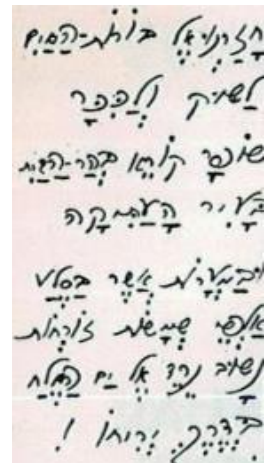 חָזַרְנוּ אֶל בּוֹרוֹת-הַמַּיִם
לַשּׁוּק וְלַכִּכָּר
שׁוֹפָר קוֹרֵא בְּהַר-הַבַּיִת
בָּעִיר הָעַתִּיקָה
וּבַמְּעָרוֹת אֲשֶׁר בַּסֶּלַע
אַלְפֵי שְׁמָשׁוֹת זוֹרְחוֹת
נָשׁוּב נֵרֵד אֶל יַם הַמֶּלַח
בְּדֶרֶךְ יְרִיחוֹ !